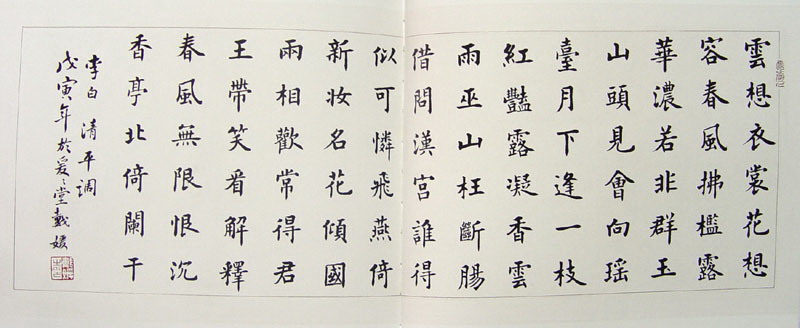 雲想衣裳花想
容春風拂檻露
華濃若非群玉
山頭見會向瑶
臺月下逢一枝
紅豔露凝香雲
雨巫山枉斷腸
借問漢宮誰得
似可憐飛燕倚
新妆名花傾國
兩相歡常得君
王帶笑看解釋
春風無限恨沉
香亭北倚闌干
李白 清平调
戊寅年於爰〻堂戴媛